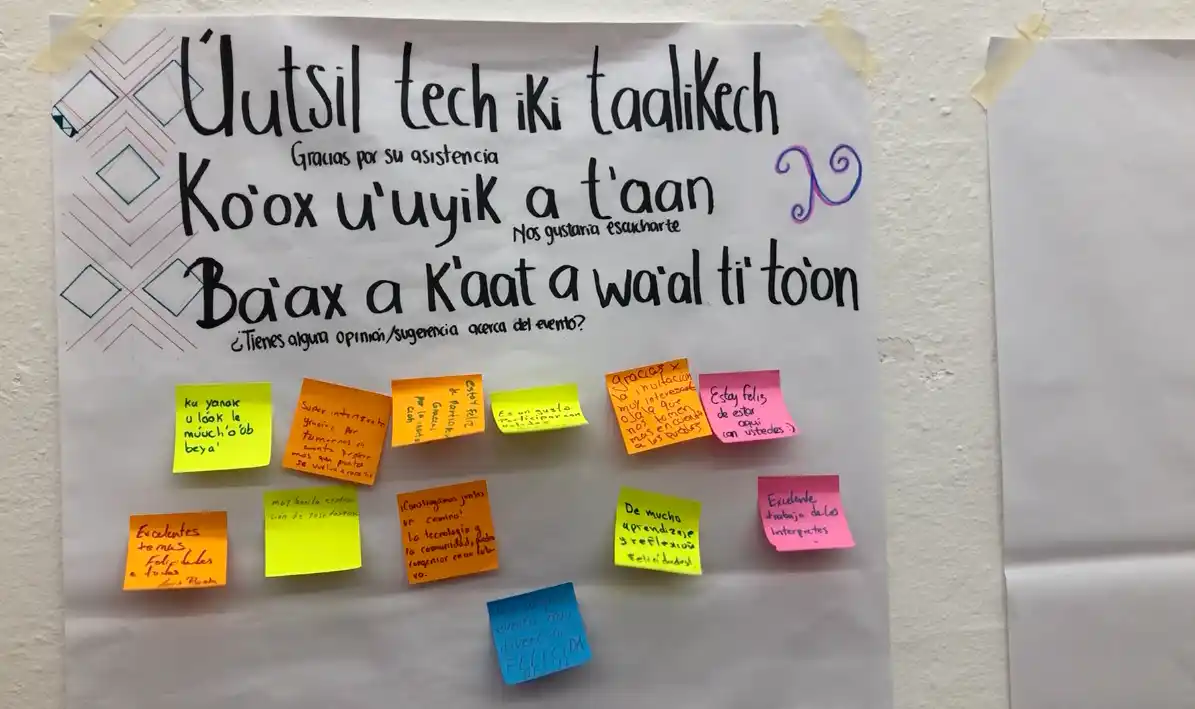 Úutsil tech iki taalikech
Gracias por su asistencia
Ko'ox u'uyik a t'aan
Nos gustaria escucharte
Ba'ax a k'aat a wa'al ti' to'on
¿Tienes alguna opinión/sugerencia acerca del evento?
Ku yanak
u láak' le
múuch'o'ob
beya'
Super interesante
gracias por
evento
mas
estoy feliz
de
Gracias
por la
Es un gusto
Participar con
ustedes
gracias x
la invitacion
muy interesante
ojala que
nos tomen
mas en cuenta
a los pueblos
Estoy feliz
de estar
aqui
con ustedes :)
Excelentes
temas
Felicidades
a todos
muy bonita
¡Construyamos juntos
un camino!
La tecnologia y
la comunidad, pueden
De mucho
aprendizaje
y reflexión
Felicidades!
Excelente
trabajo de los
interpretes